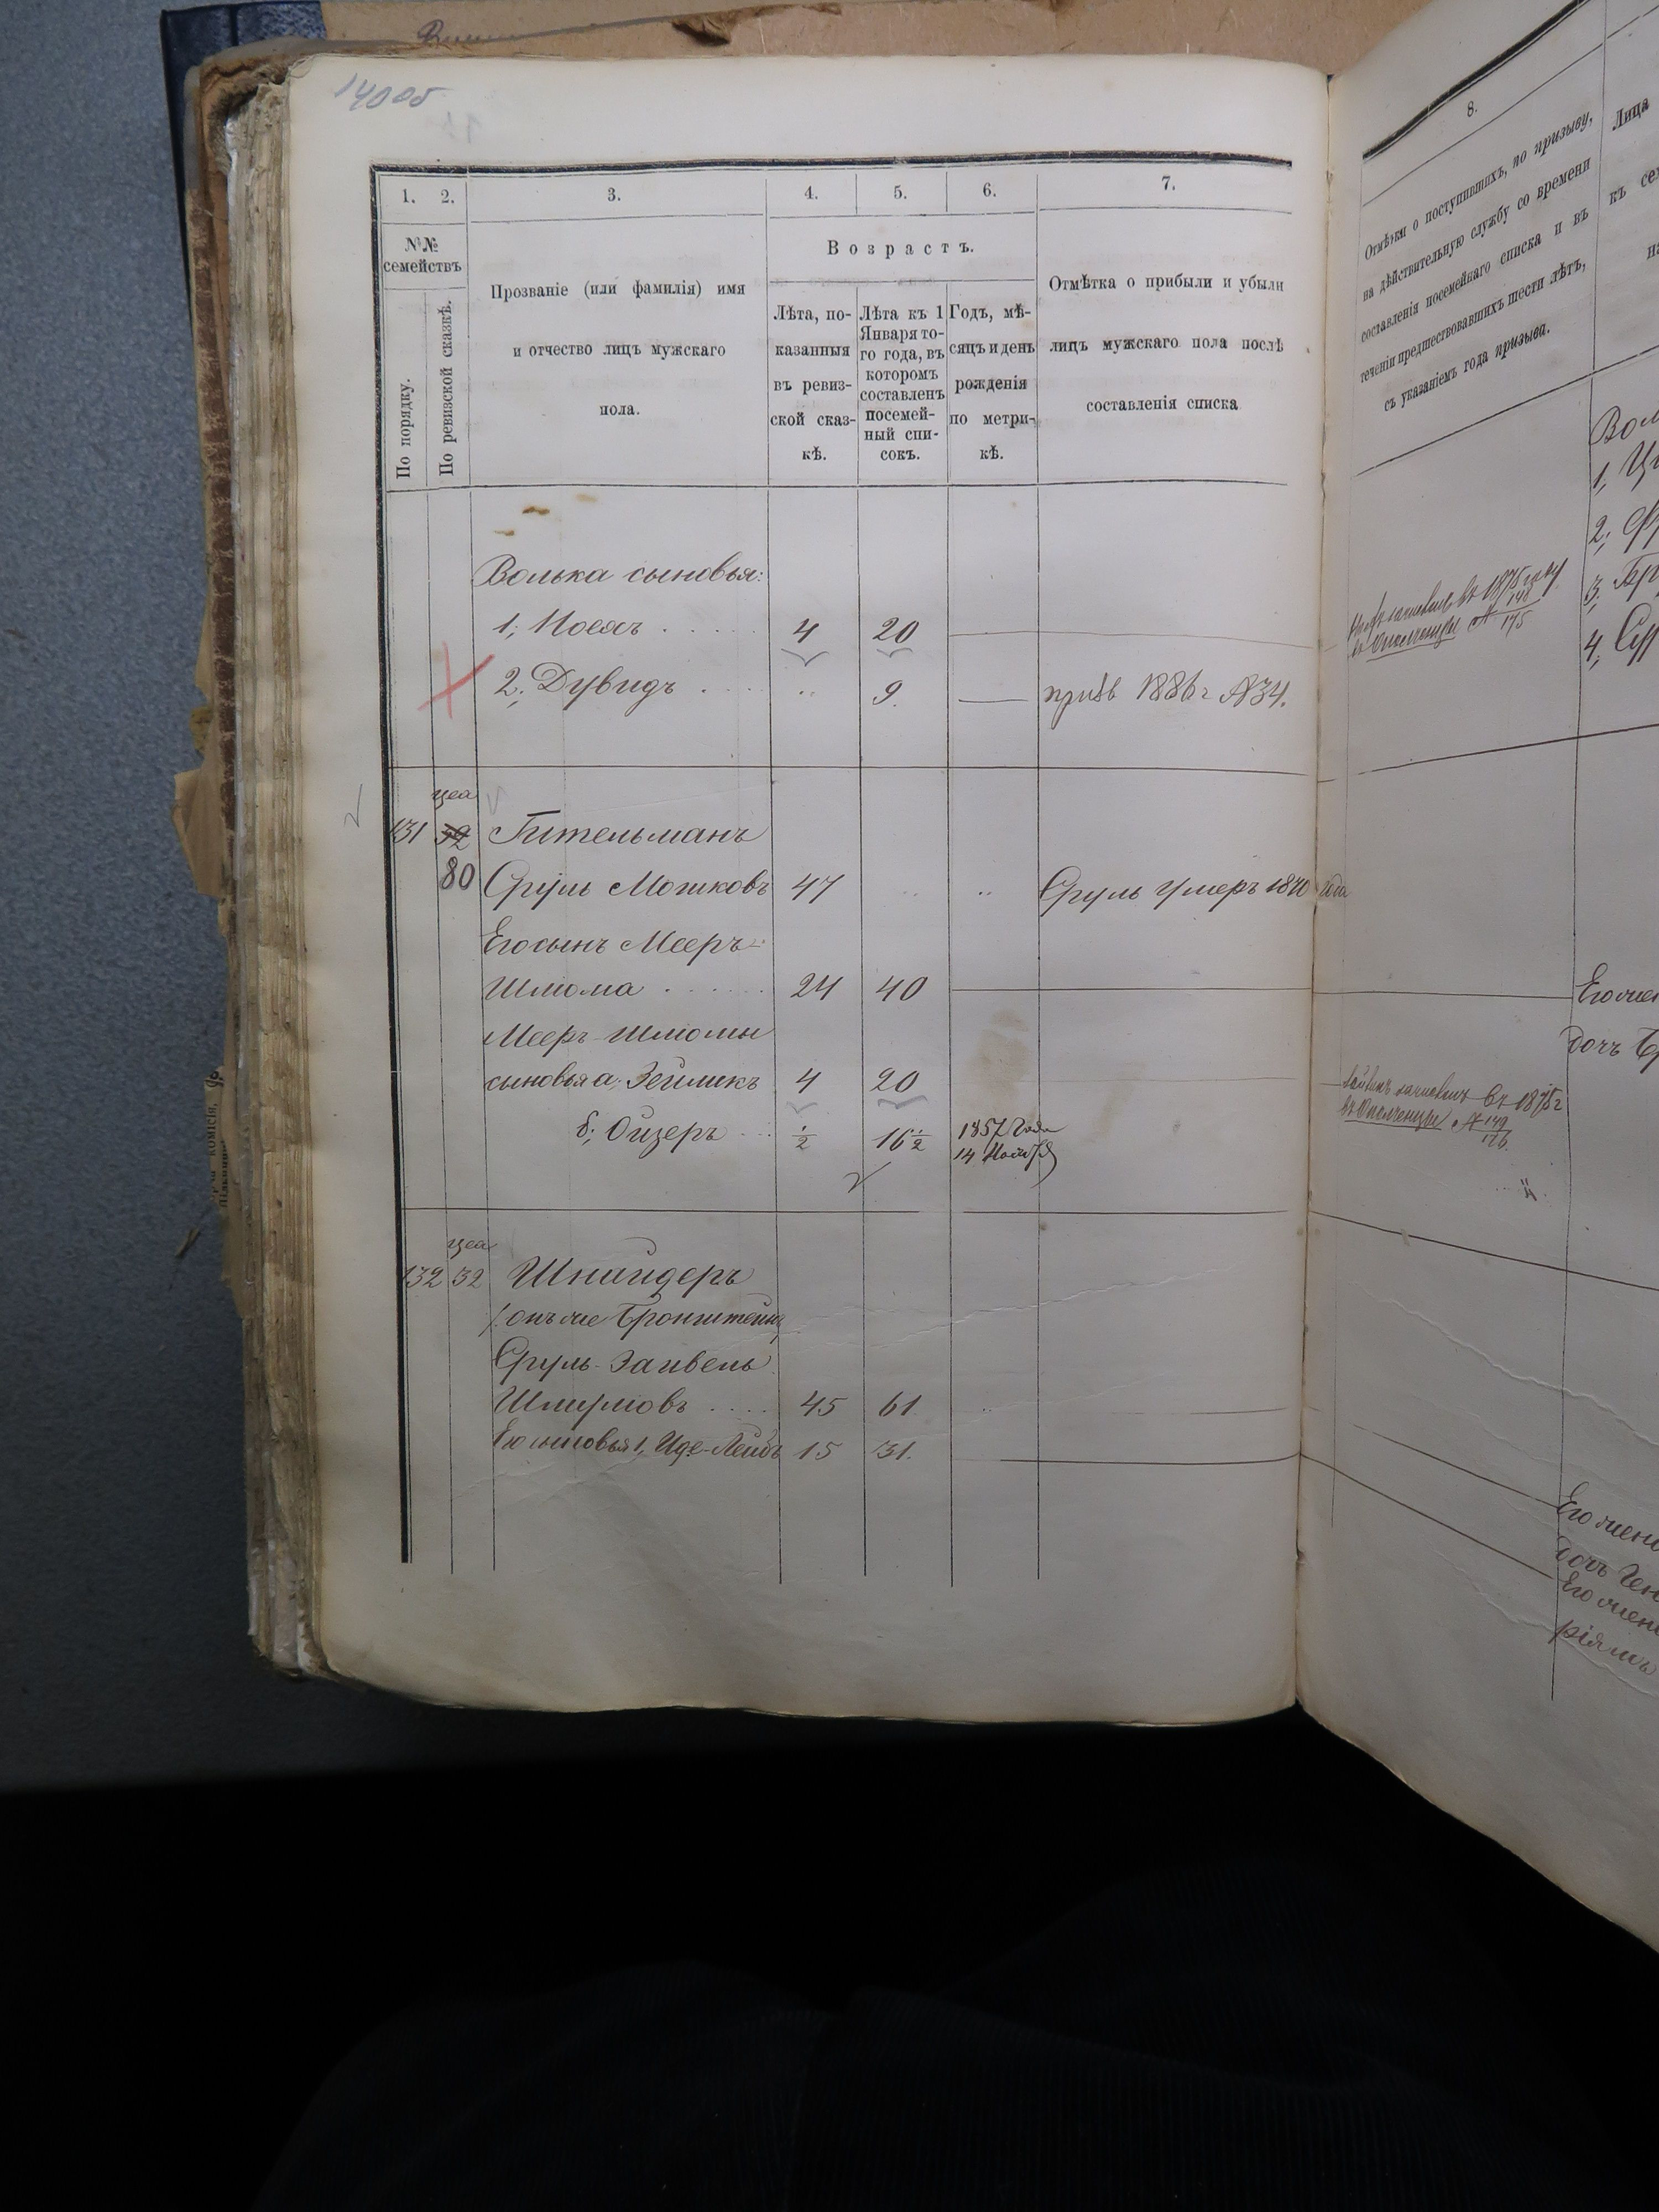 140об
1. 2. 3. 4. 5. 6. 7.
№№ семействъ
По порядку.
По ревизской сказкѣ.
Прозваніе (или фамилія) имя
и отчество лицъ мужскаго
пола.
Возрастъ.
Лѣта, по-
казанныя
въ ревиз-
ской сказ-
кѣ.
Лѣта къ 1
Января то-
го года, въ
которомъ
составленъ
посемей-
ный спи-
сокъ.
Годъ, мѣ-
сяцъ и день
рожденія
по метри-
кѣ.
Отмѣтка о прибыли и убыли
лицъ мужскаго пола послѣ
составленія списка
Волька сыновья:
1, Носахъ 4 20
2, Дувидъ 9. призв 1886 г №34.
131 32 Гительманъ
80 Сруль Мошковъ 47 Сруль умеръ 1870 года
Его сынъ Мееръ-
Шлюма 24 40
Мееръ-Шлюмы
сыновья а, Зейликъ 4 20
б; Ойзеръ ½ 16½ 1857 года
14 Ноября
132 32 Шнайдеръ
онъ же Бронштейнъ
Сруль-Занвель
Шмулювъ 45 61
Его сыновья 1, Иде-Лейбъ 15 31.
8.
Отмѣтки о поступившихъ, по призыву,
на дѣйствительную службу со времени
составленія посемейнаго списка и въ
теченіи предшествовавшихъ шести лѣтъ,
съ указаніемъ года призыва.
въ 1875 году
въ Ополченцы № 148
175
зачисленъ въ 1875 г
въ Ополченцы № 149
176.
Лица
къ сем
на
Вол
1, Ци
2, Фр
3, Бр
4,
Его жен
дочь
Его жена
дочь Ген
Его жена